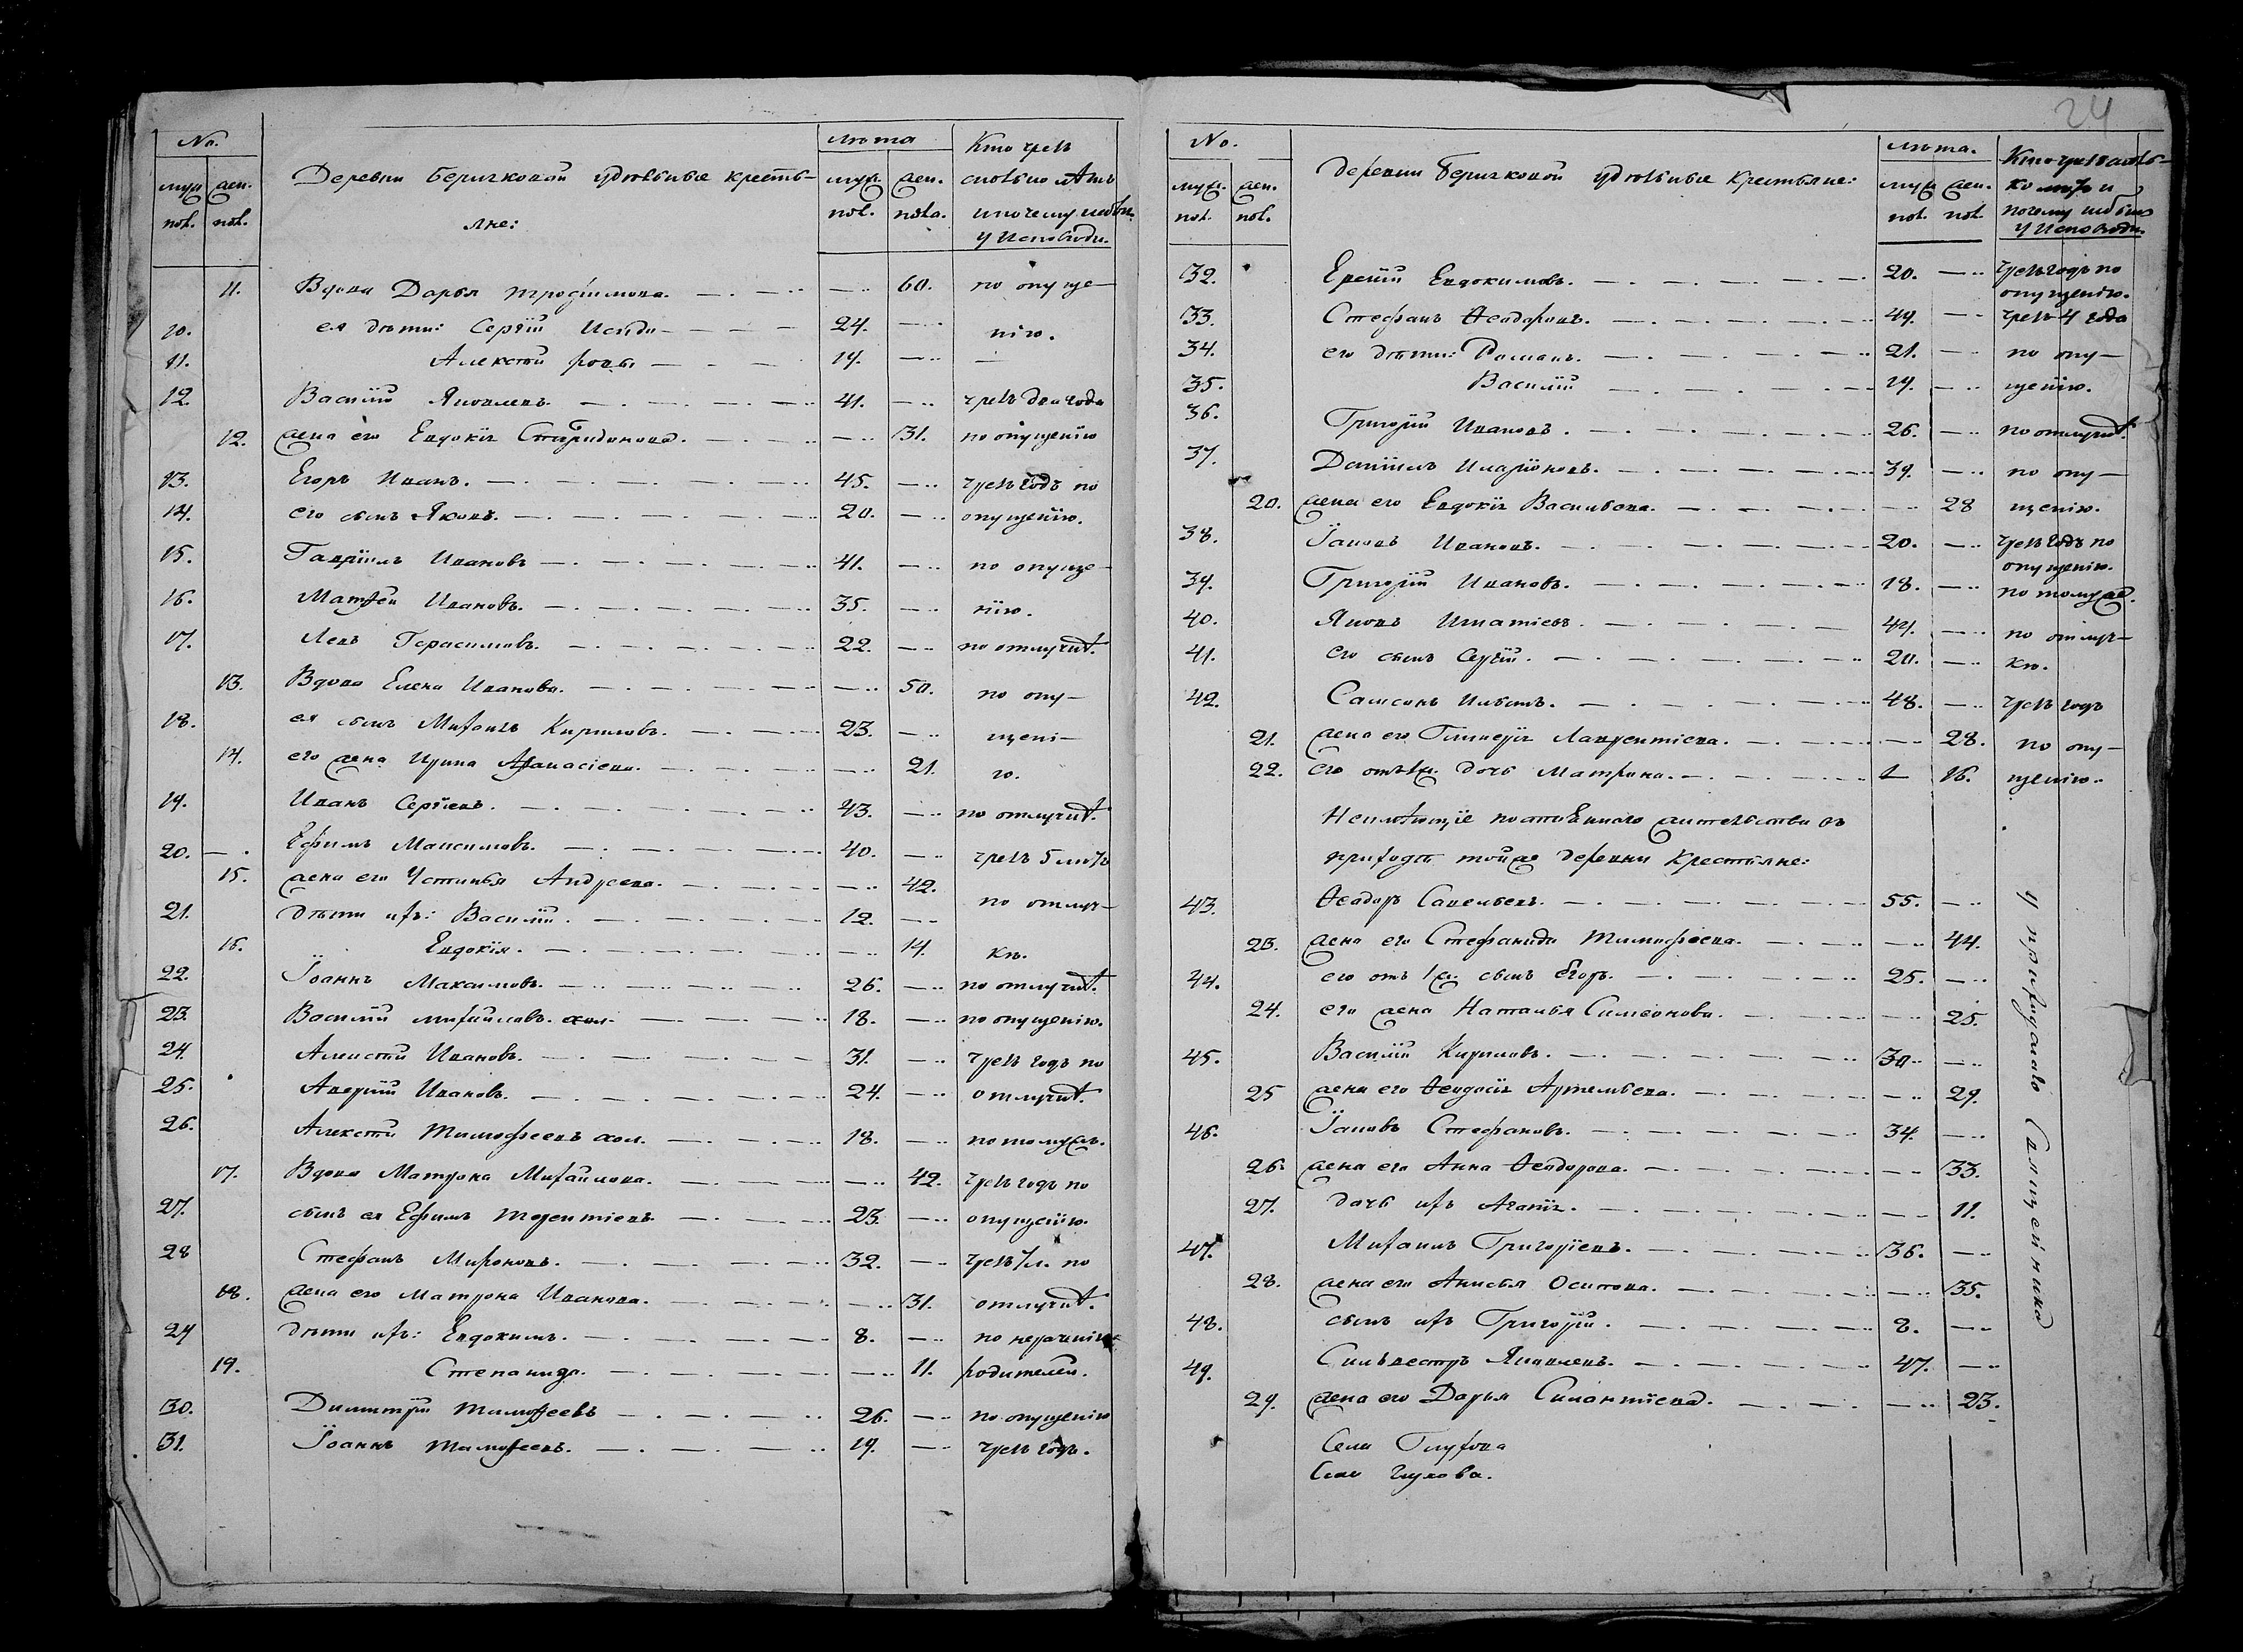 No.
муж. пол. жен. пол.
Деревни Беричковой удѣльные крестьяне:
лѣта
муж. пол. жен. пола.
Кто чрезъ сколько лѣтъ и почему не былъ у исповѣди.
11. Вдова Дарья Трофимова. 60. по опуще-
10. ея дѣти: Сергій Исидо- 24. нію.
11. Алексѣй ровы 19.
12. Василій Яковлевъ. 41. чрезъ два года
12. жена его Евдокія Спиридонова. 31. по опущенію
13. Егоръ Иванъ. 45. чрезъ годъ по
14. его сынъ Яковъ. 20. опущенію.
15. Гавріилъ Ивановъ 41. по опуще-
16. Матѳей Ивановъ. 35. нію.
17. Левъ Герасимовъ. 22. по отлучкѣ.
13. Вдова Елена Иванова. 50. по опу-
18. ея сынъ Михаилъ Кириловъ. 23. щені-
14. его жена Ирина Афанасіева. 21. ю.
19. Иванъ Сергіевъ. 43. по отлучкѣ.
20. Ефимъ Максимовъ. 40. чрезъ 5 лѣтъ
15. жена его Устинья Андреева. 42. по отлуч-
21. дѣти ихъ: Василій. 12.
16. Евдокія. 14. кѣ.
22. Іоаннъ Максимовъ. 26. по отлучкѣ.
23. Василій Михайловъ. хол. 18. по опущенію.
24. Алексѣй Ивановъ. 31. чрезъ годъ по
25. Аверкій Ивановъ. 24. отлучкѣ.
26. Алексѣй Тимофеевъ хол. 18. по томужъ.
17. Вдова Матрона Михайлова. 42. чрезъ годъ по
27. сынъ ея Ефимъ Терентіевъ 23. опущенію.
28 Стефанъ Мироновъ. 32. чрезъ 1 г. по
18. жена его Матрона Иванова. 31. отлучкѣ.
29 дѣти ихъ: Евдокимъ. 8. по нераченію
19. Степанида. 11. родителей.
30. Димитрій Тимоѳеевъ 26. по опущенію
31. Іоаннъ Тимоѳеевъ. 19. чрезъ годъ.
24
No.
муж. пол. жен. пол.
Деревни Беричковой удѣльные крестьяне:
лѣта.
муж. пол. жен. пол.
Кто чрезъ сколько лѣтъ и почему не былъ у исповѣди.
32. Евсѣй Евдокимовъ. 20. чрезъ годъ по опущенію.
33. Стефанъ Ѳеодоровъ. 44. чрезъ 4 года
34. его дѣти: Романъ. 21. по опу-
35. Василій 19. щенію.
36. Григорій Ивановъ. 26. по отлучкѣ.
37. Даніилъ Иларіоновъ. 39. по опу-
20. жена его Евдокія Васильева. 28 щенію.
38. Іаковъ Ивановъ. 20. чрезъ годъ по опущенію.
39. Григорій Ивановъ. 18. по томуже.
40. Яковъ Игнатіевъ. 44. по отлуч-
41. его сынъ Сергій. 20. кѣ.
42. Самсонъ Ильинъ. 48. чрезъ годъ
21. жена его Гликерія Лаврентіева. 28. по опу-
22. его отъ 1 ж. дочь Матрона. 16. щенію.
Неимѣющіе постояннаго жительства въ
приходѣ тойже деревни крестьяне:
43. Ѳеодоръ Савельевъ. 55.
23. жена его Стефанида Тимофеева. 44.
44. его отъ 1 ж. сынъ Егоръ. 25.
24. его жена Наталья Симеонова. 25.
45. Василій Кириловъ. 30.
25 жена его Ѳеодосія Артемьева. 29.
46. Іаковъ Стефановъ. 34.
26. жена его Анна Ѳеодорова. 33.
27. дочь ихъ Агапія. 11.
47. Михаилъ Григоріевъ. 36.
28. жена его Анисья Осипова. 35.
48. сынъ ихъ Григорій. 8.
49. Сильвестръ Яковлевъ. 47.
29. жена его Дарья Силантіева. 23.
У приходскаго Священника
Села Глухова
Села Глухова.